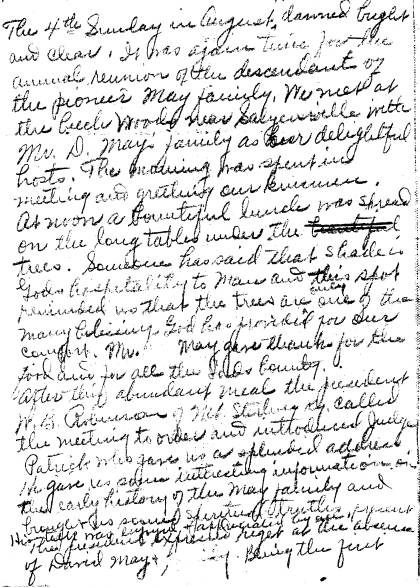 The 4th Sunday in August, dawned bright
and clear. It was again time for the
annual reunion of the descendant of
the pioneer May family. We met at
the Beech Woods near with
Mr. D. May's family as our delightful
hosts. The morning was spent in
meeting and greeting our kinsmen.
At noon a bountiful lunch was spread
on the long tables under the beautiful
trees. Someone has said that Shade is
Gods hospitality to Man and this spot
reminded us that the trees are only one of the
many blessings God has provided for our
comfort. Mr. May gave thanks for the
food and for all the Gods bounty.
After this abundant meal the president
W. B. Robinson of Mt. Sterling Ky. called
the meeting to order and introduced Judge
Patrick who gave us a splendid address
He gave us some interesting information on
the early history of the May family and
brought us some spiritual truths
His was by all present
The president expressed regret at the absence
of David May, Ky. Being the first